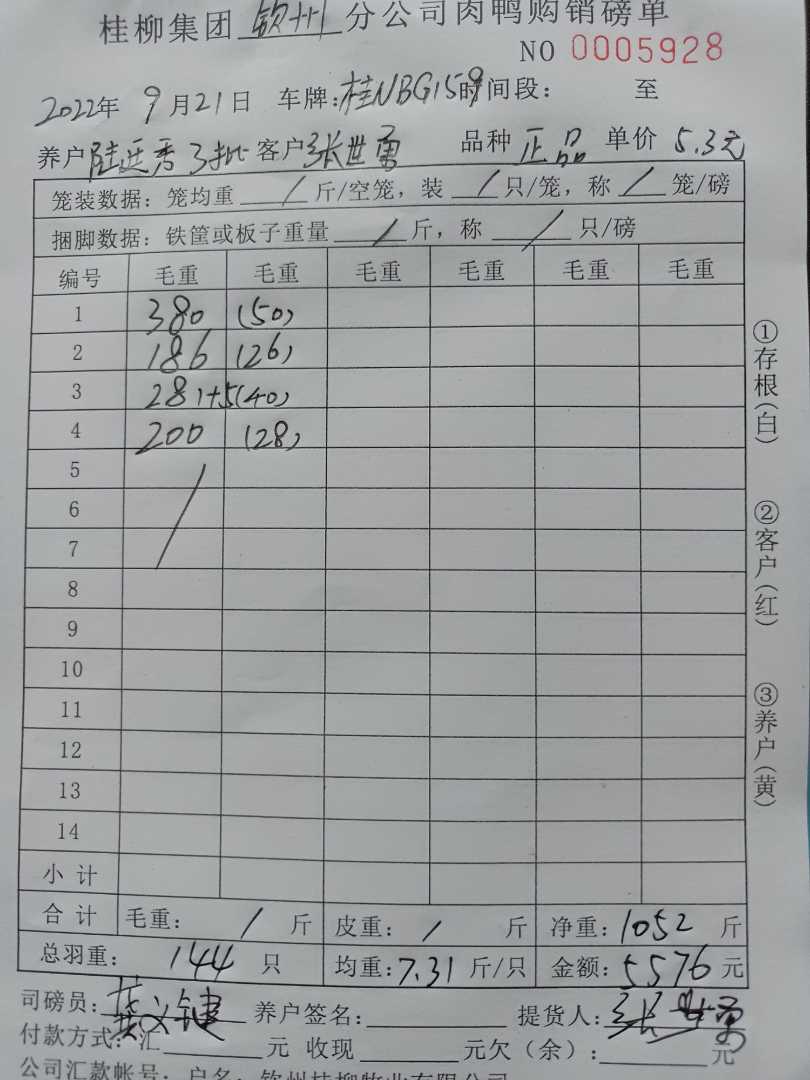 桂柳集团 钦州 分公司肉鸭购销磅单
NO 0005928
2022年 9月21日 车牌:桂NBG159 时间段: 至
养户 陆廷秀 3批 客户 张世勇 品种 正品 单价 5.3元
笼装数据: 笼均重 / 斤/空笼, 装 / 只/笼, 称 / 笼/磅
捆脚数据: 铁筐或板子重量 / 斤, 称 / 只/磅
编号 毛重 毛重 毛重 毛重 毛重 毛重
1 380 (50)
2 186 (26)
3 281+5 (40)
4 200 (28)
5
6
7
8
9
10
11
12
13
14
小计
合计 毛重: / 斤 皮重: / 斤 净重: 1052 斤
总羽重: 144 只 均重: 7.31 斤/只 金额: 5576 元
司磅员: 养户签名: 提货人: 张世勇
付款方式: 汇 元 收现 元欠(余): 元
公司汇款帐号: 户名: 钦州桂柳牧业有限公司
①存根(白)
②客户(红)
③养户(黄)